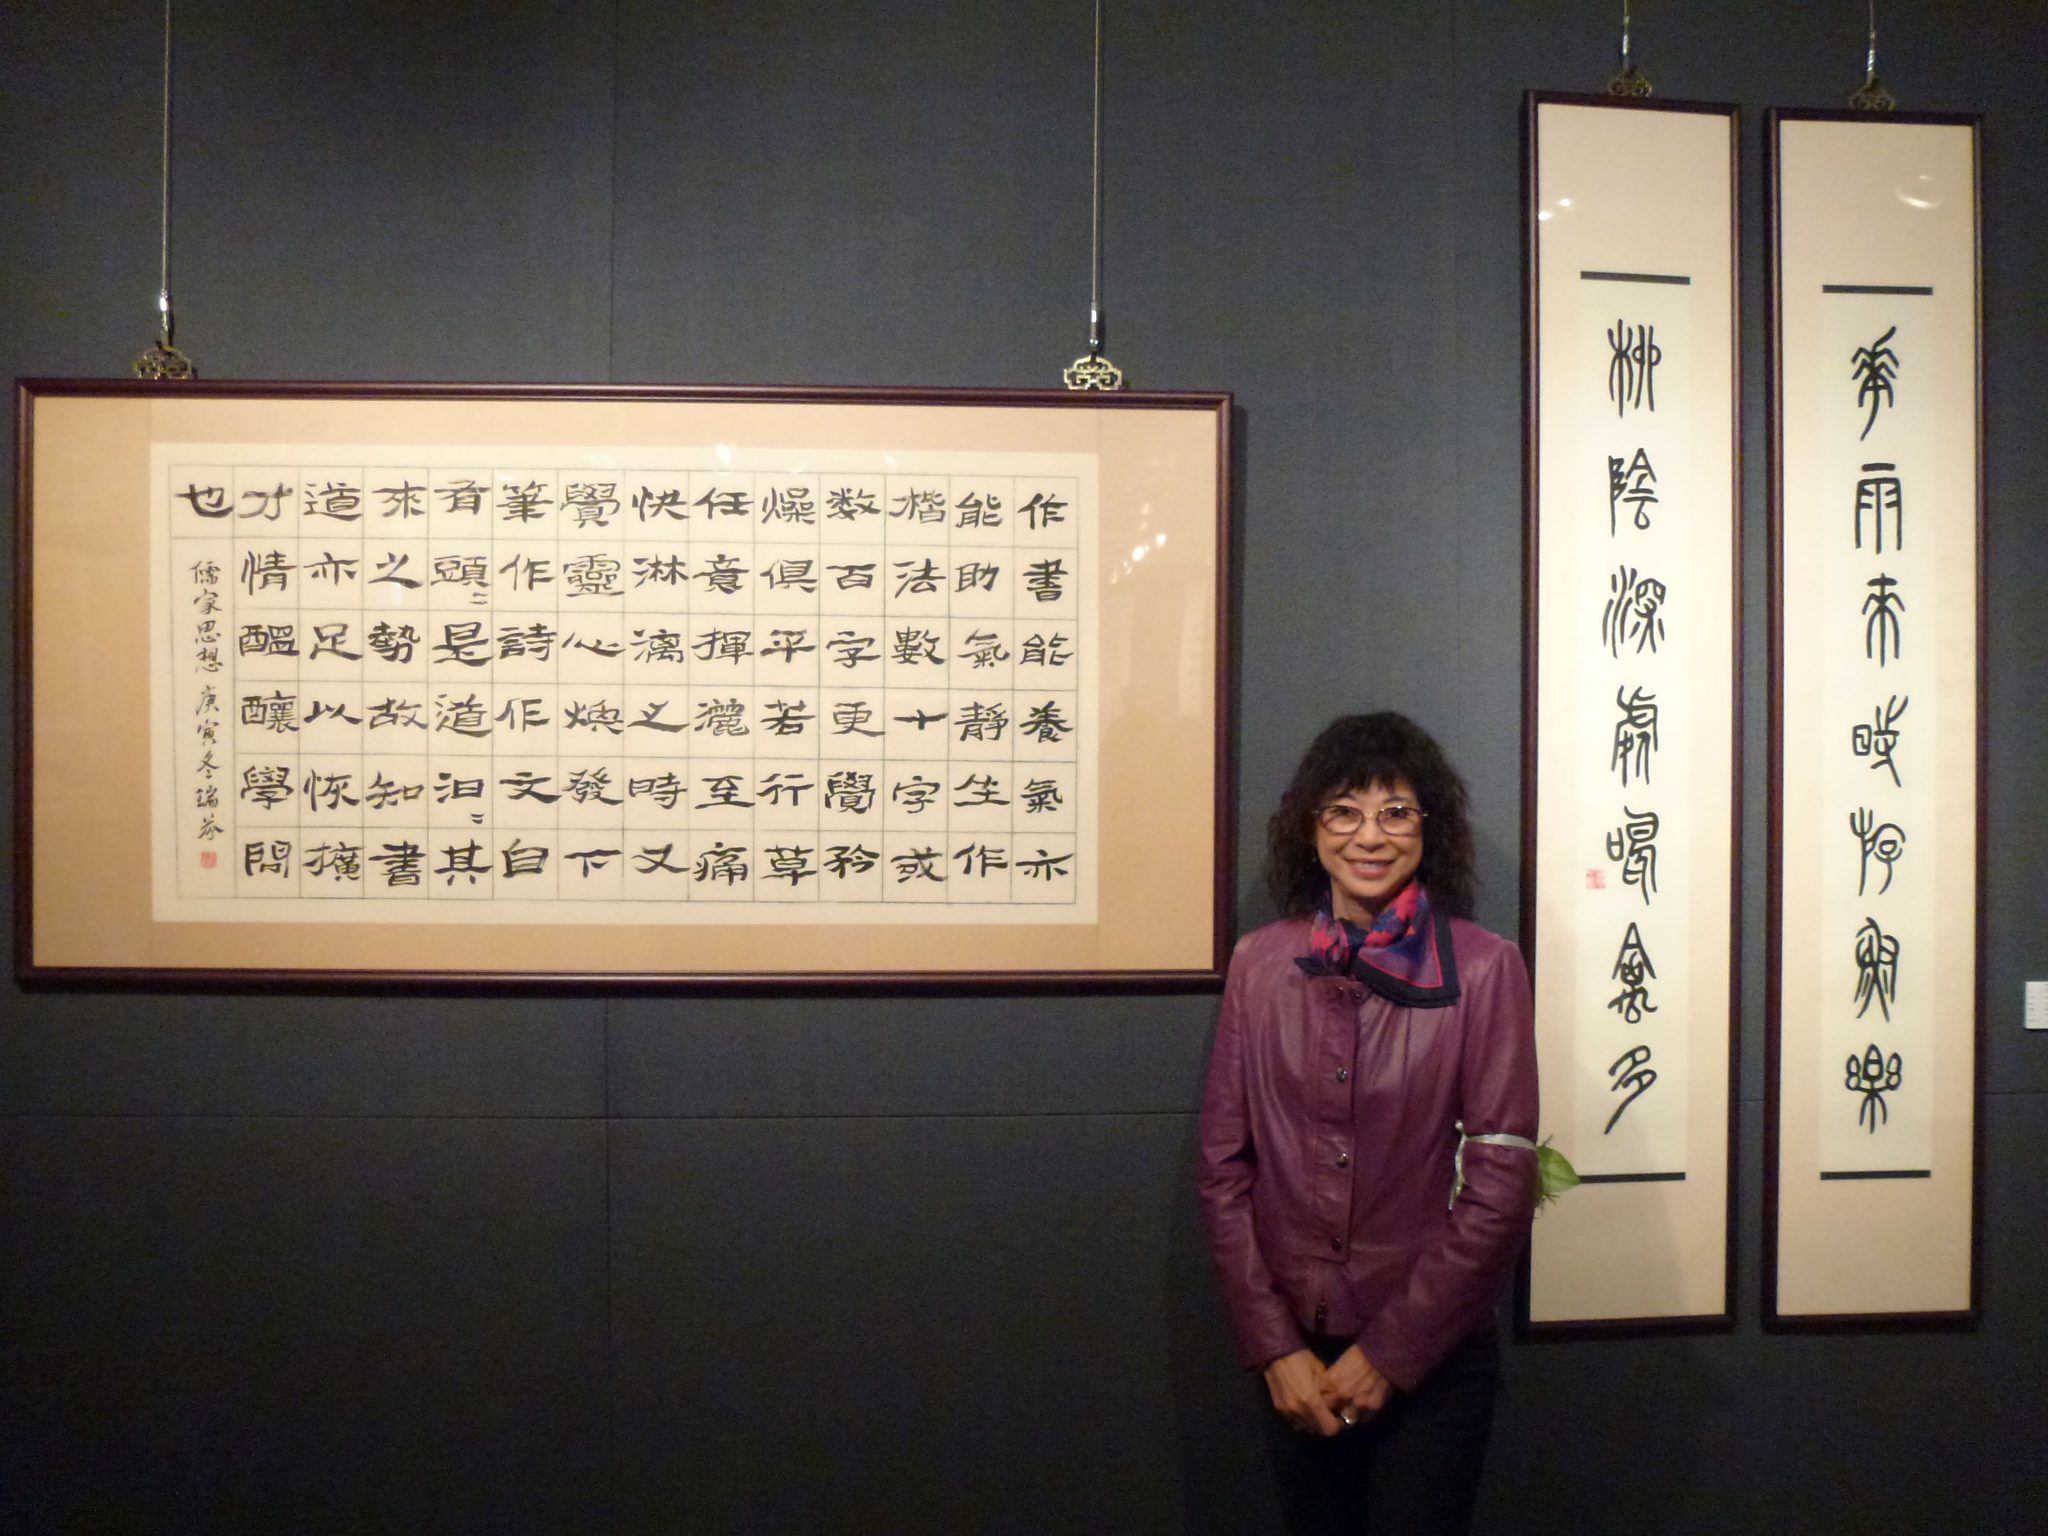 華雨來時游魚樂
柳陰深處鳴禽多
作書能養氣亦
能助氣靜坐作
楷法數十字或
数百字更覺矜
燥俱平若行草
任意揮灑至痛
快淋漓之時又
覺靈心煥發下
筆作詩作文自
有頭〻是道汩〻其
來之勢故知書
道亦足以恢擴
才情醞釀學問
也
儒家思想 庚寅冬 瑞芬